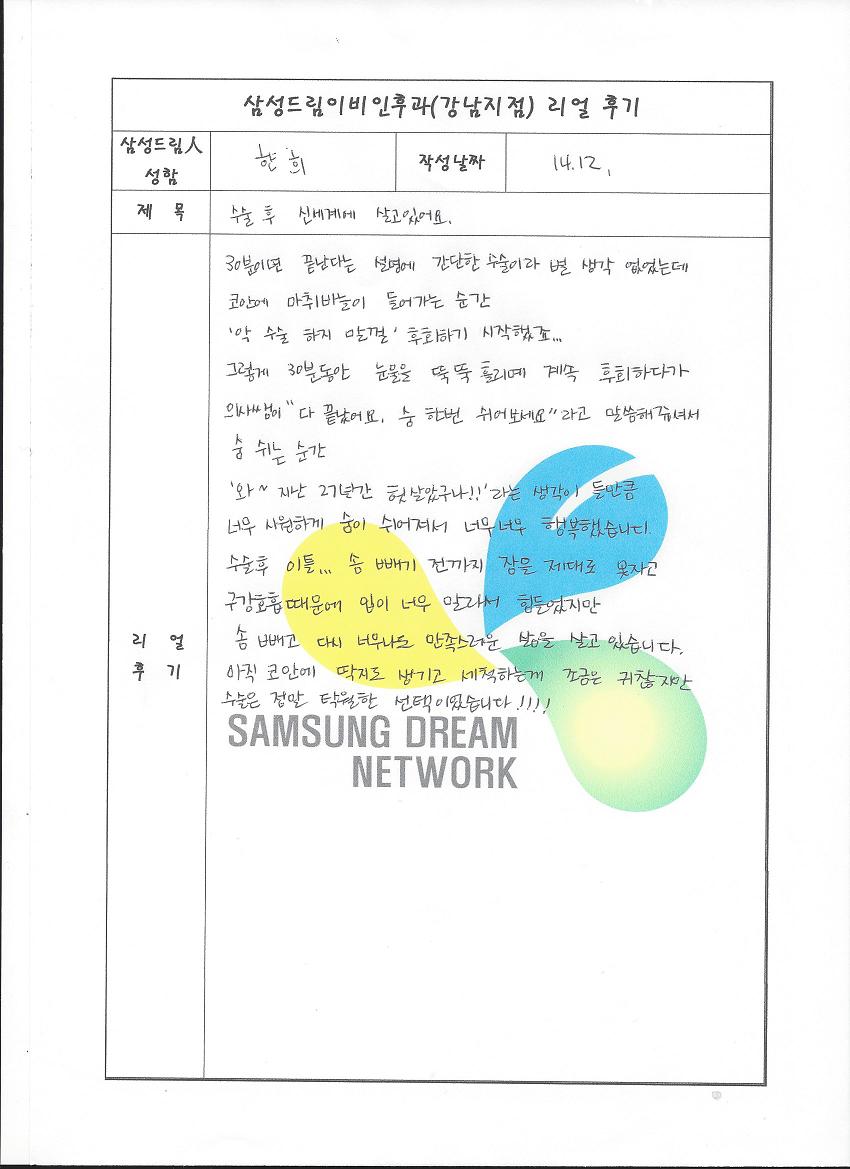 삼성드림이비인후과(강남지점) 리얼 후기
삼성드림人 성함
한 희
작성날짜
14.12.
제 목
수술 후 신세계에 살고있어요.
리 얼 후 기
30분이면 끝난다는 설명에 간단한 수술이라 별 생각 없었는데
코안에 마취바늘이 들어가는 순간
'악 수술 하지 말껄' 후회하기 시작했죠...
그렇게 30분동안 눈물을 뚝뚝 흘리며 계속 후회하다가
의사쌤이 "다 끝났어요. 숨 한번 쉬어보세요"라고 말씀해주셔서
숨 쉬는 순간
'와~ 지난 27년간 헛살았구나!!'라는 생각이 들만큼
너무 시원하게 숨이 쉬어져서 너무너무 행복했습니다.
수술후 이틀... 솜 빼기 전까지 잠을 제대로 못자고
구강호흡때문에 입이 너무 말라서 힘들었지만
솜 빼고 다시 너무나도 만족스러운 삶을 살고 있습니다.
아직 코안에 딱지도 생기고 세척하는게 조금은 귀찮지만
수술은 정말 탁월한 선택이었습니다!!!!
SAMSUNG DREAM
NETWORK